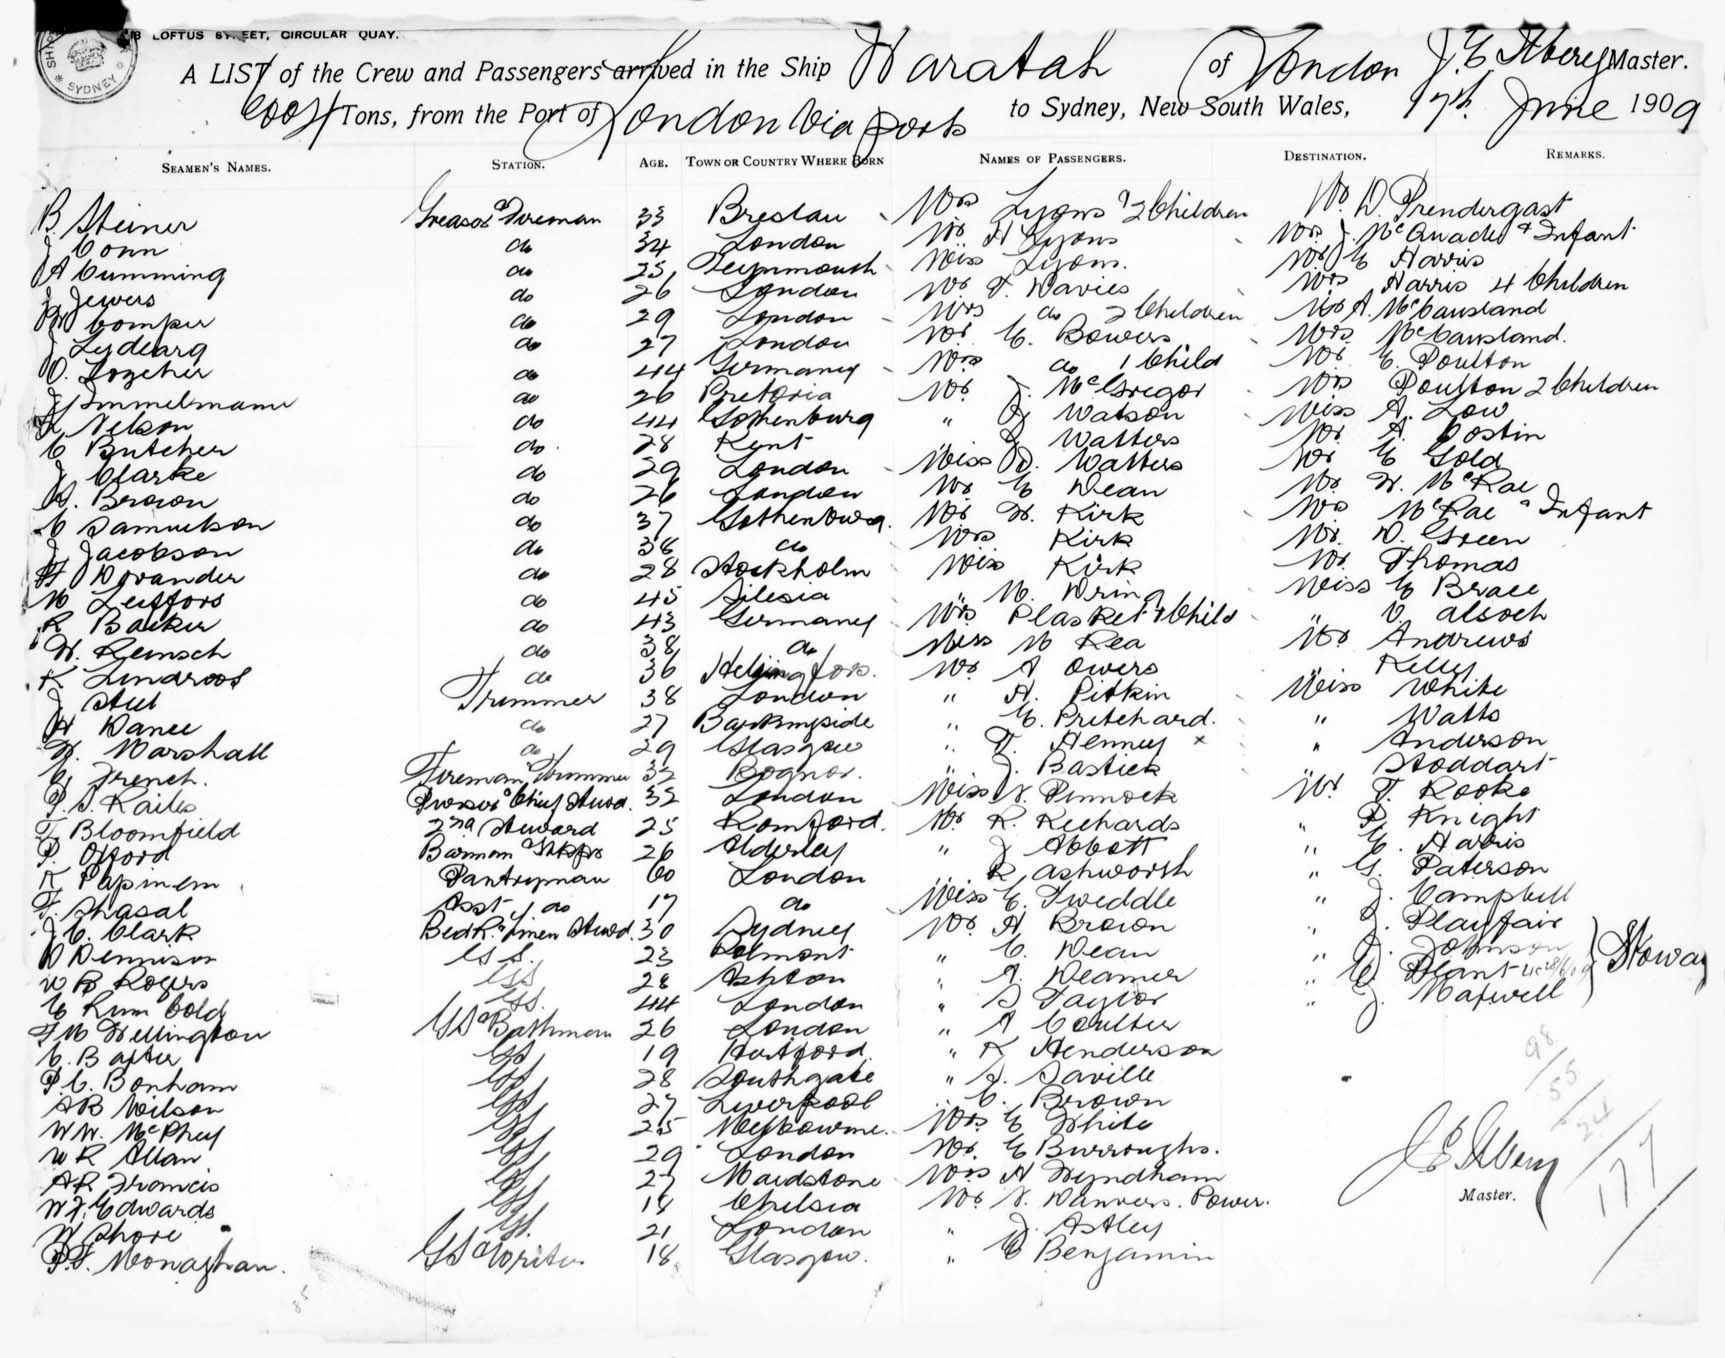 LOFTUS STREET, CIRCULAR QUAY.
SYDNEY
A LIST of the Crew and Passengers arrived in the Ship Waratah of London J. E. Ilbery Master.
6004 Tons, from the Port of London Via ports to Sydney, New South Wales, 17th. June 1909
SEAMEN'S NAMES. STATION. AGE. TOWN OR COUNTRY WHERE BORN NAMES OF PASSENGERS. DESTINATION. REMARKS.
B. Steiner Greaser & Fireman 33 Breslau Mrs Lyons & 2 Children Mr. D. Prendergast
J Conn do 34 London Mr H Lyons Mrs J. McQuade & Infant
A Cumming do 25 Teignmouth Miss Lyons. Mr E Harris
J Jewers do 26 London Mr T. Davies Mrs Harris 4 Children
do 29 London Mrs do 2 Children Mr A. McCausland
J do 27 London Mr. E. Bowers Mrs McCausland.
do 44 Germany Mrs do 1 Child Mr E. Poulton
J Immelmann do 26 Pretoria Mr J. McGregor Mrs Poulton 2 Children
K Nelson do 44 Gothenburg " Watson Miss A. Low
C Butcher do. 28 Kent J Watters Mr A. Costin
J Clarke do 29 London Miss D. Watters Mr E Gold
A. Brown do 26 London Mr E Dean Mr W. McRae
C Samuelson do 37 Gothenburg. Mr W. Kirk Mrs McRae & Infant
J Jacobson do 38 do Mrs Kirk Mr. D. Green
do 28 Stockholm Miss Kirk Mr Thomas
M do 45 Silesia " M. Miss E Brace
R Backer do 43 Germany Mrs Plasket & Child " V.
W. Remsch do 38 do Miss M Rea Mr Andrews
K Lindroos do 36 Helsingfors. Mr A Owers Kelly
J Steel Trimmer 38 London " H. Pitkin Miss White
H Dance do 27 Barkingside " E. Pritchard. " Watts
W. Marshall do 29 Glasgow " T. Henney x " Anderson
G French. Fireman Trimmer 32 Bognor. " J. Bastick " Stoddart
P. S. Kailes Purser & Chief Stewd. 32 London Miss N. Pinnock Mr. T. Rooke
F Bloomfield 2nd Steward 25 Romford. Mr. R. Richards " P. Knight
P. Offord Barman 26 Alderley " J Abbott " E. Harris
K Papinem Pantryman 60 London R Ashworth " G. Paterson
F. Shasal Asst do 17 do Miss E. Tweddle " J. Campbell
J C. Clark BedR. & Linen Stewd. 30 Sydney Mr H Brown " J. Playfair
D Dennison GS. 23 Belmont " C. Dean " J. Johnson
W B Rogers GS 28 Ashton " A. Deamer " Plant } Stoway
E Rumbold GS. 44 London " S Taylor " J. Maxwell
F M Wellington GS & Bathman 26 London " A Coulter
C. Baxter GS 19 Hertford. " K Henderson
P. C. Bonham GS 28 Southgate " S. Saville
A B Wilson GS 27 Liverpool " C. Brown
W W. McPhey GS 25 Melbourne. Mrs E White
W R Allan GS 29 London Mr. E Burroughs.
A R Francis GS 27 Maidstone Mrs H Wyndham
W F. Edwards GS 18 Chelsea Mr. N. Danvers. Power.
W Shore GS. 21 London " J. Astley
P. F. Monaghan. GS & Writer 18 Glasgow. " Benjamin
98
55
24
177
J E Ilbery
Master.
85